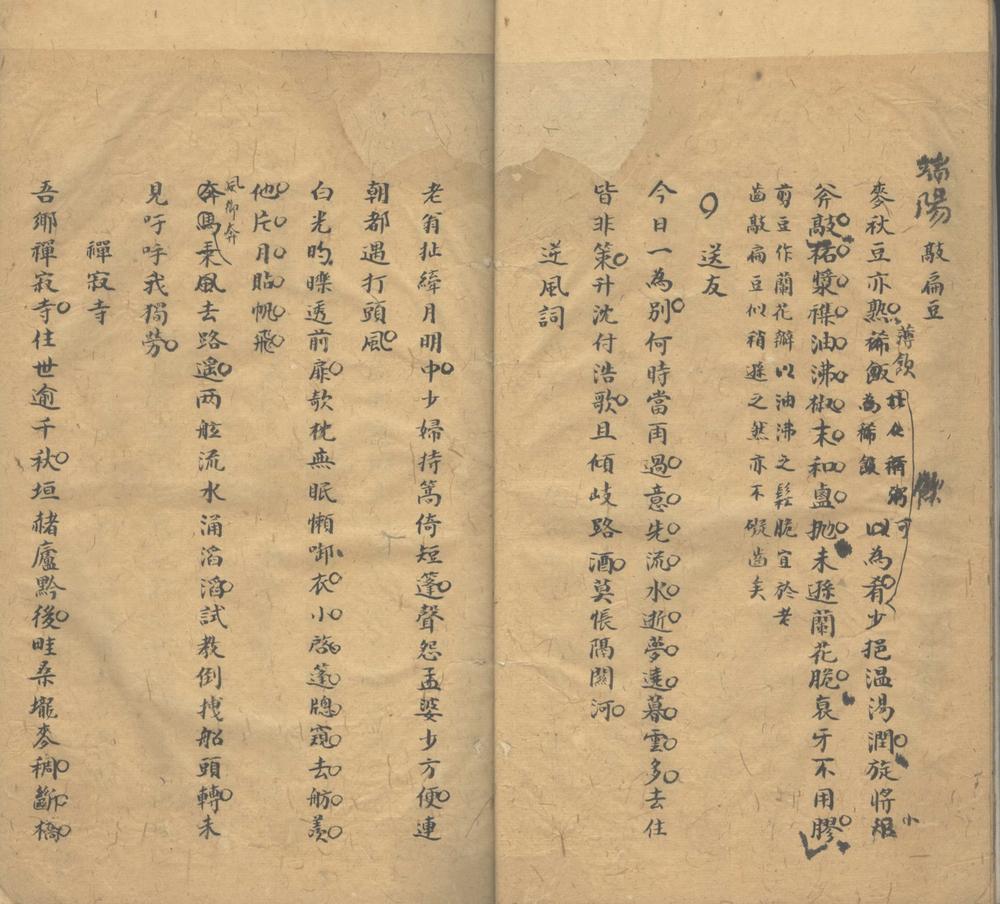 端陽 敲扁豆
麥秋豆亦熟稀飯 薄飲 為稀飯 俗稱粥 可以為肴少挹温湯潤旋將小
斧敲糕漿襍油沸椒末和盧拋未遜蘭花脆哀牙不用膠
剪豆作蘭花瓣以油沸之鬆脆宜於老
齒敲扁豆似稍遜之然亦不礙齒矣
送友
今日一為別何時當再過意先流水逝夢遶暮雲多去住
皆非策升沈付浩歌且傾岐路酒莫悵隔關河
逆風詞
老翁扯縴月明中少婦持篙倚短篷聲怨孟婆少方便連
朝都遇打頭風
白光的皪透前扉欹枕無眠懶啣衣小啟篷牕窺去舫羨
他片月貼帆飛
風御奔
奔馬乘風去路遙兩舷流水涌滔滔試教倒拽船頭轉未
見吁呼我獨勞
禪寂寺
吾鄉禪寂寺住世逾千秋垣赭廬黔後畦桑壠麥稠斷橋